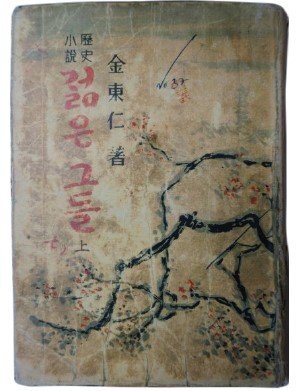 歷史
小說
젊은 그들
上
金東仁 著
No 37